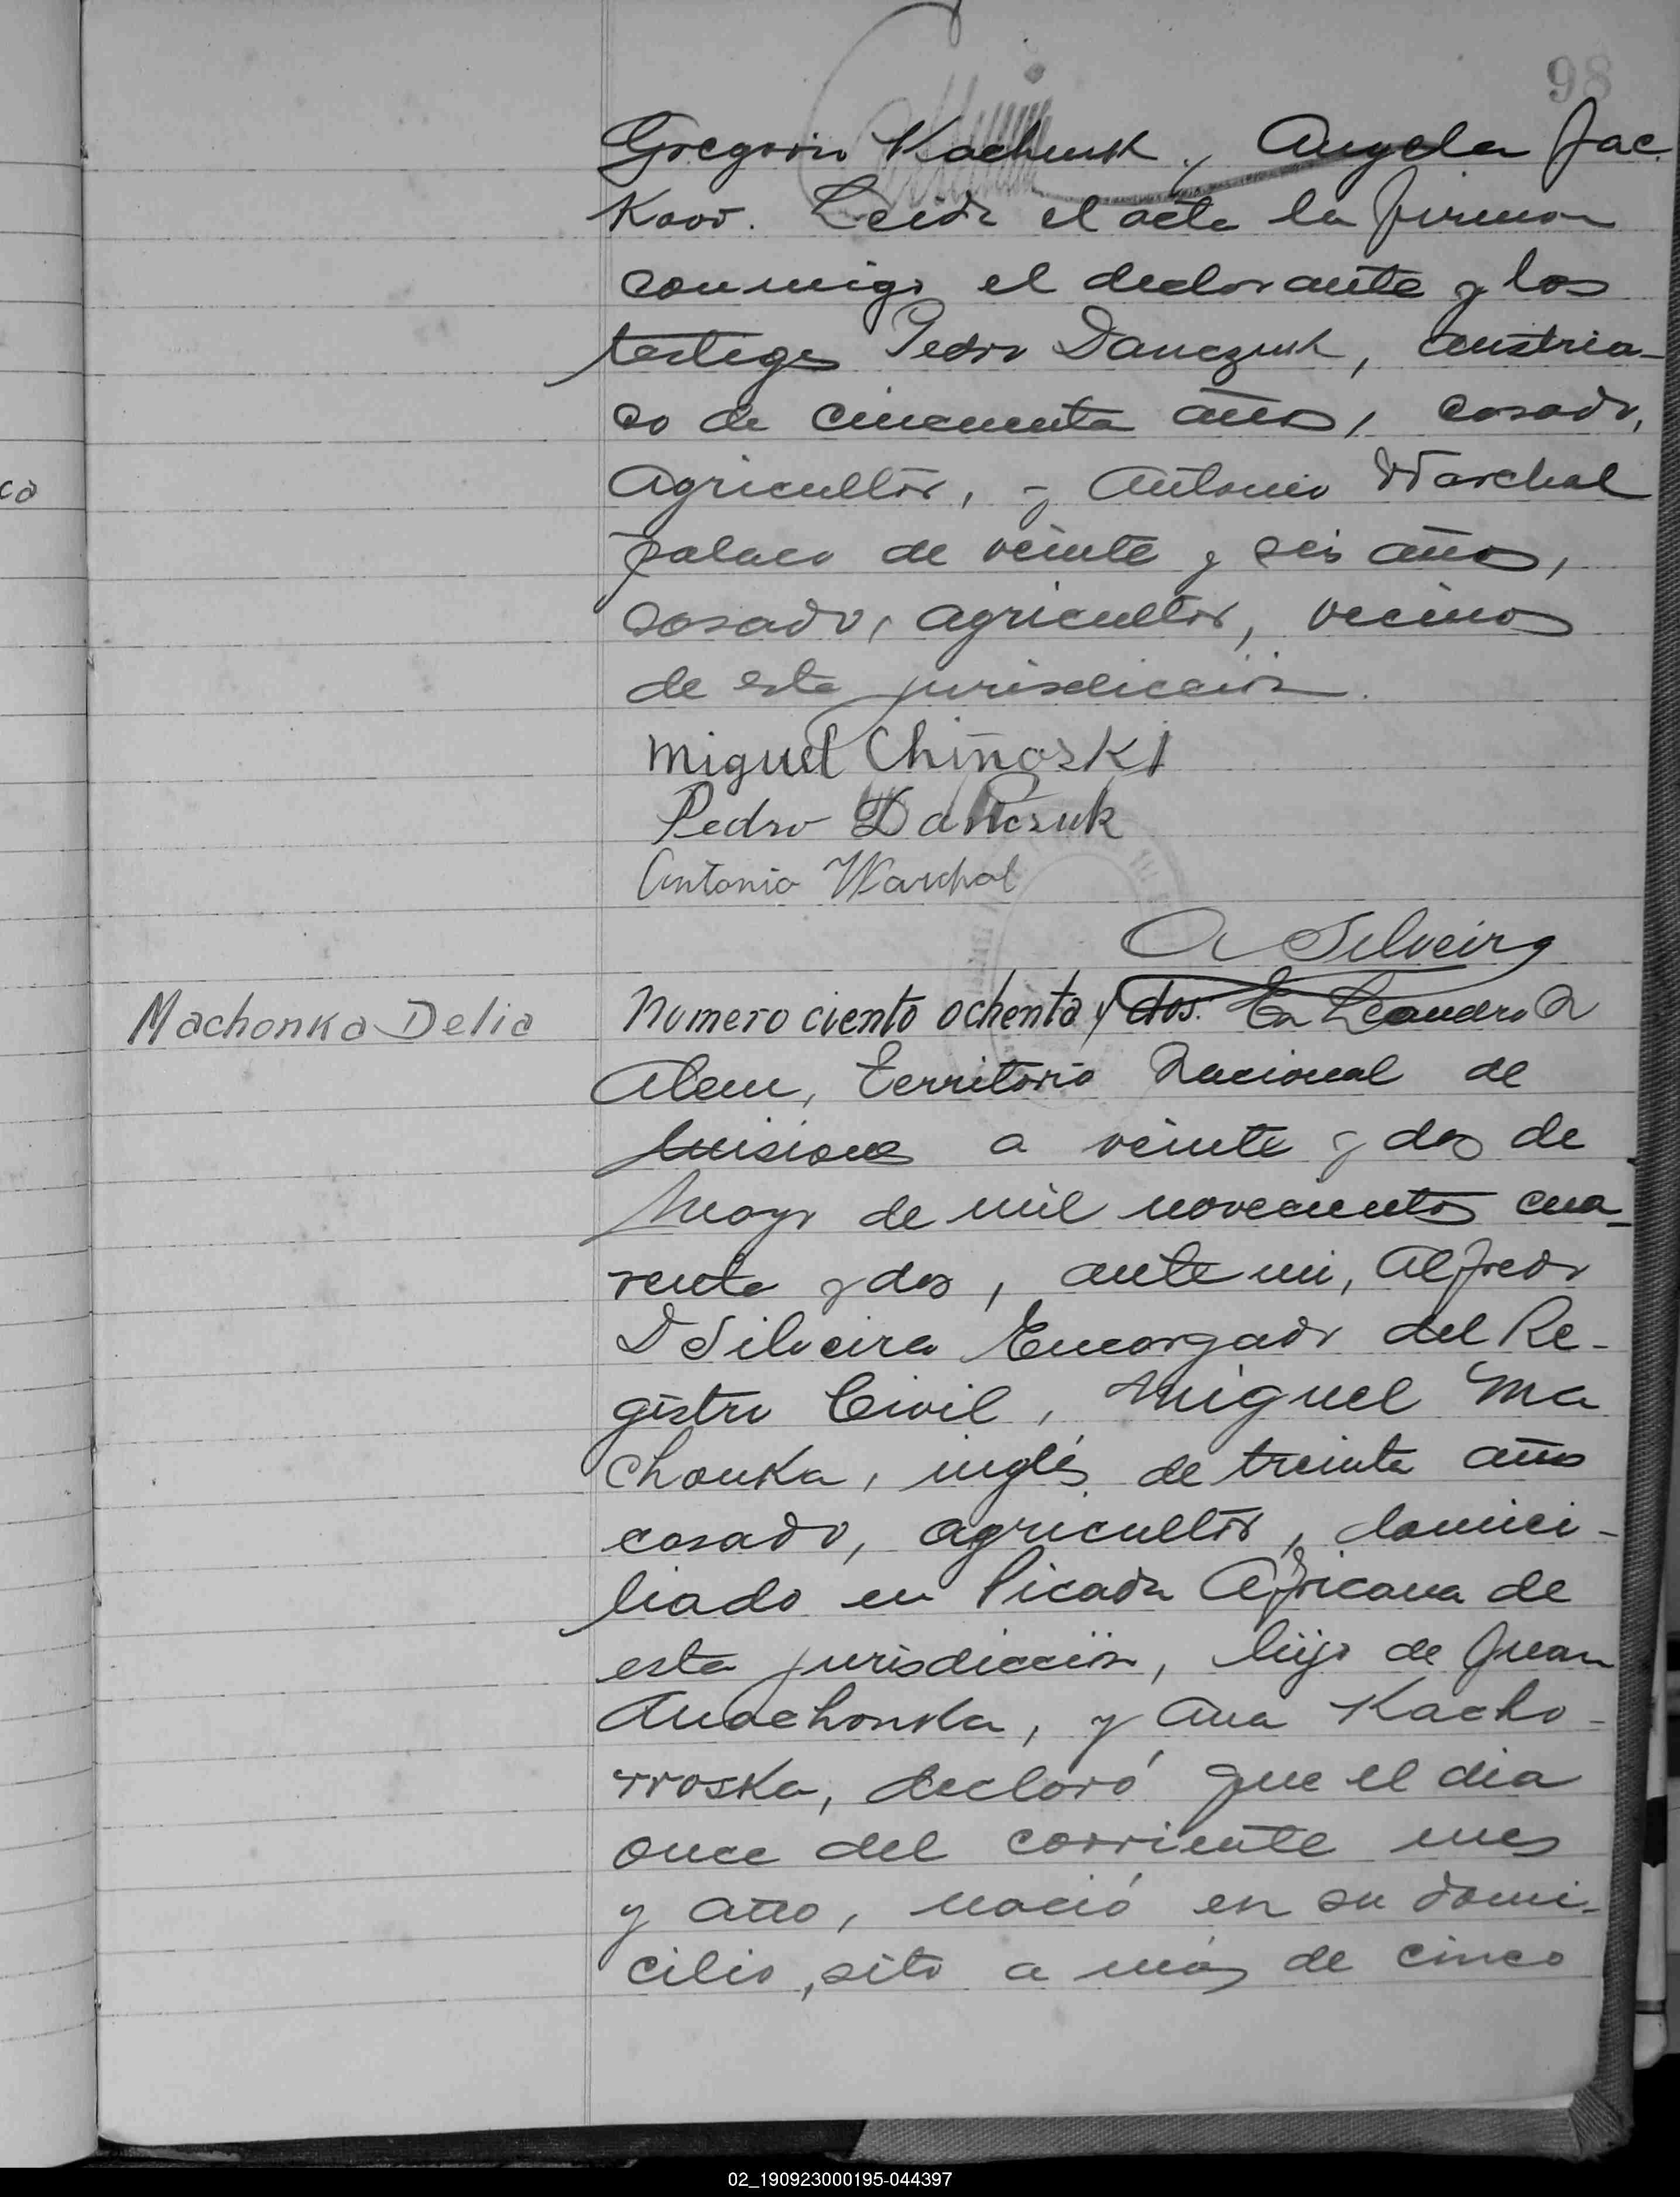 98
Gregorio Kachuk y Angela Jac
Koov. Leida el acta la firman
conmigo el declarante y los
testigos Pedro Danczuk, austria-
co de cincuenta años, casado,
agricultor, y Antonio Warchal
polaco de veinte y seis años,
casado, agricultor, vecinos
de esta jurisdicción.
Miguel Chiñoski
Pedro Danczuk
Antonio Warchal
A Silveira
Machonka Delia
Numero ciento ochenta y dos. En Leandro N
Alem, Territorio Nacional de
Misiones a veinte y dos de
Mayo de mil novecientos cua-
renta y dos, ante mi, Alfredo
D Silveira Encargado del Re-
gistro Civil, Miguel Ma
chonka, inglés de treinta años
casado, agricultor, domici-
liado en Picada Africana de
esta jurisdicción, hijo de Juan
Machonka, y Ana Kacho-
rroska, declaró que el dia
once del corriente mes
y año, nació en su domi-
cilio, sito a más de cinco
02_190923000195-044397